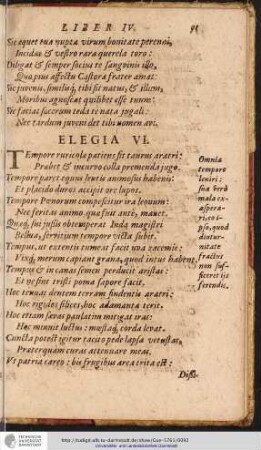 LIBER IV. 91
Sic equet tua nupta virum bonitate perenni,
Incidat & vestro rara querela toro:
Diligat & semper socius te sanguinis illo,
Quo pius affectu Castora frater amat:
Sic juvenis, similisq́, tibi sit natus, & illum,
Moribus agnoscat quilibet esse tuum:
Sic faciat socerum teda te nata jugali:
Nec tardum juveni det tibi nomen avi.
ELEGIA VI.
TEmpore ruricolæ patiens fit taurus aratri:
Præbet & incurvo colla premenda jugo.
Tempore paret equus lentis animosus habenis:
Et placido duros accipit ore lupos.
Tempore Pœnorum compescitur ira leonum:
Nec feritas animo, quæ fuit antè, manet.
Quæq́, sui jussis obtemperat Inda magistri
Bellua, servitium tempore victa subit.
Tempus, ut extentis tumeat facit uva racemis:
Vixq́, merum capiant grana, quod intus habent.
Tempus & in canas semen perducit aristas:
Et ne sint tristi poma sapore facit.
Hoc tenuat dentem terram findentis aratri:
Hoc rigidos silices, hoc adamanta terit.
Hoc etiam sævas paulatim mitigat iras:
Hoc minuit luctus: mæstaq́, corda levat.
Cuncta potest igitur tacito pede lapsa vetustas,
Præterquam curas attenuare meas.
Ut patria careo: bis frugibus area trita est:
Omnia
tempore
leniri:
sua verò
mala ex-
aspera-
ri, eo i-
pso, quod
diutur-
nitate
fractus
non suf-
ficeret iis
ferendis.
Diss-
TECHNISCHE
UNIVERSITÄT
DARMSTADT
http://tudigit.ulb.tu-darmstadt.de/show/Gue-5761/0093
Universitäts- und Landesbibliothek Darmstadt